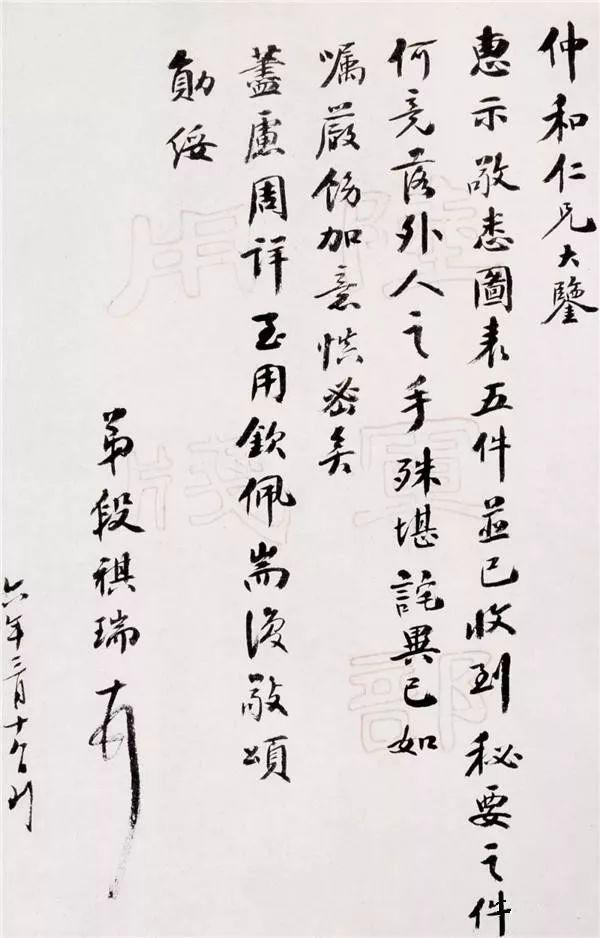 仲和仁兄大鑒
惠示敬悉圖表五件並已收到秘要之件
何竟落外人之手殊堪詫異已如
囑嚴飭加意慎密矣
藎慮周詳至用欽佩耑復敬頌
勛綏
弟段祺瑞
六年三月十
陸軍部
用牋